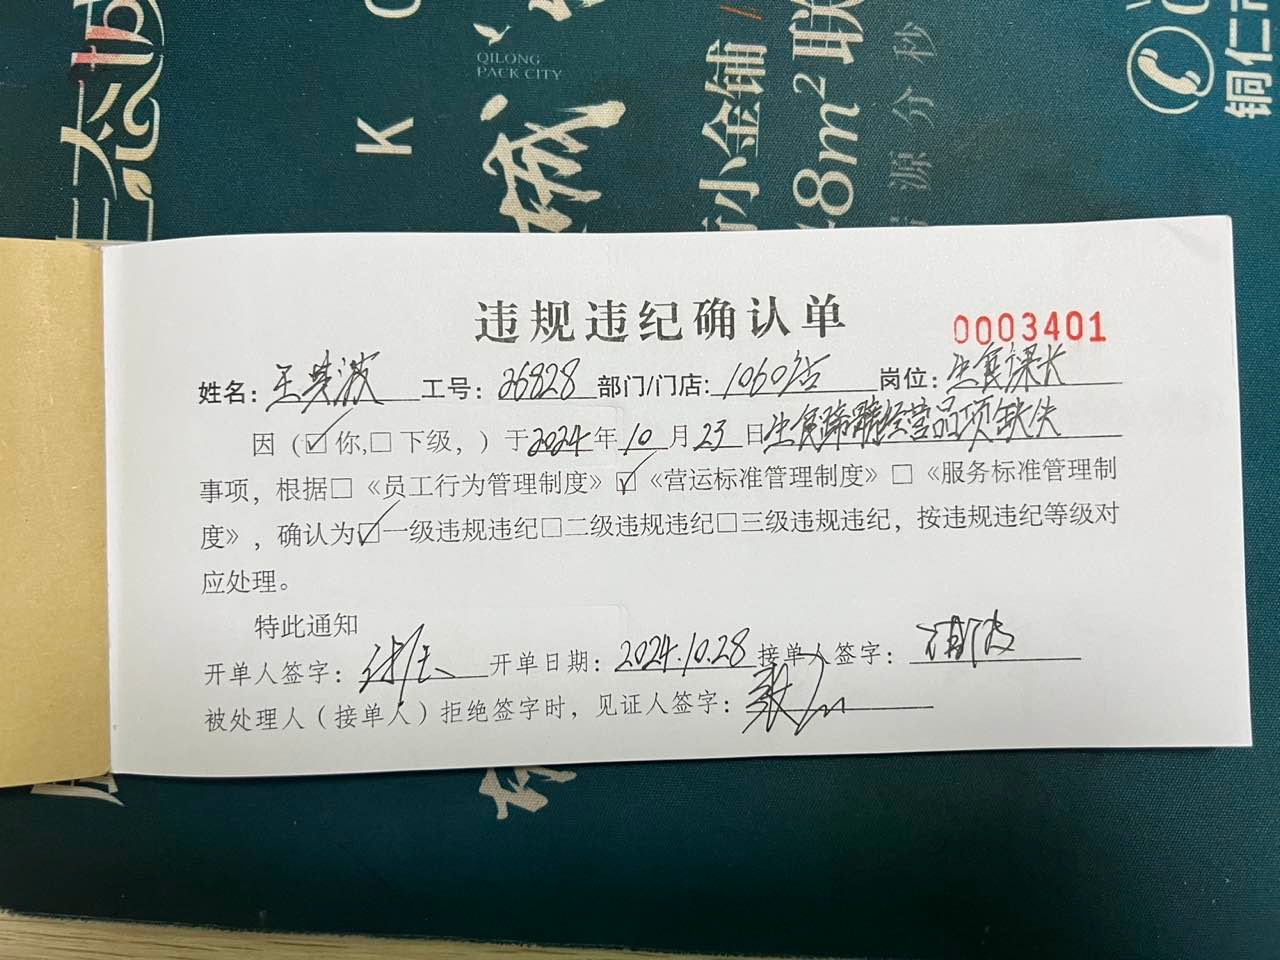 QILONG
PACK CITY
K
城
小金铺
48m²联
源分秒
铜仁市
违规违纪确认单
0003401
姓名:王其波 工号:26828 部门/门店:1060店 岗位:生食课长
因(☑你,□下级,)于2024年10月23日生食蹄髈经营品项缺失
事项,根据□《员工行为管理制度》☑《营运标准管理制度》□《服务标准管理制
度》,确认为☑一级违规违纪□二级违规违纪□三级违规违纪,按违规违纪等级对
应处理。
特此通知
开单人签字: 开单日期:2024.10.28 接单人签字:
被处理人(接单人)拒绝签字时,见证人签字: